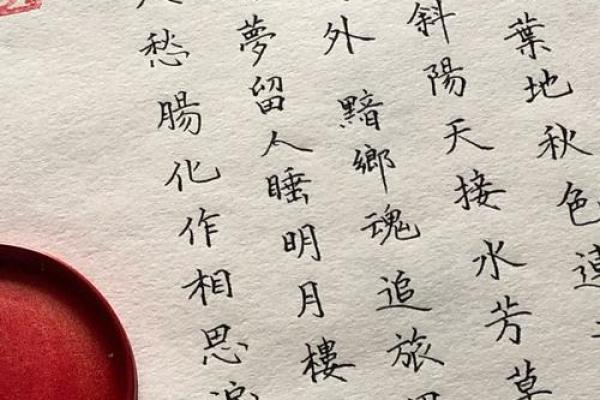 葉地秋色連
斜陽天接水芳草
外黯鄉魂追旅
夢留人睡明月樓
愁腸化作相思淚